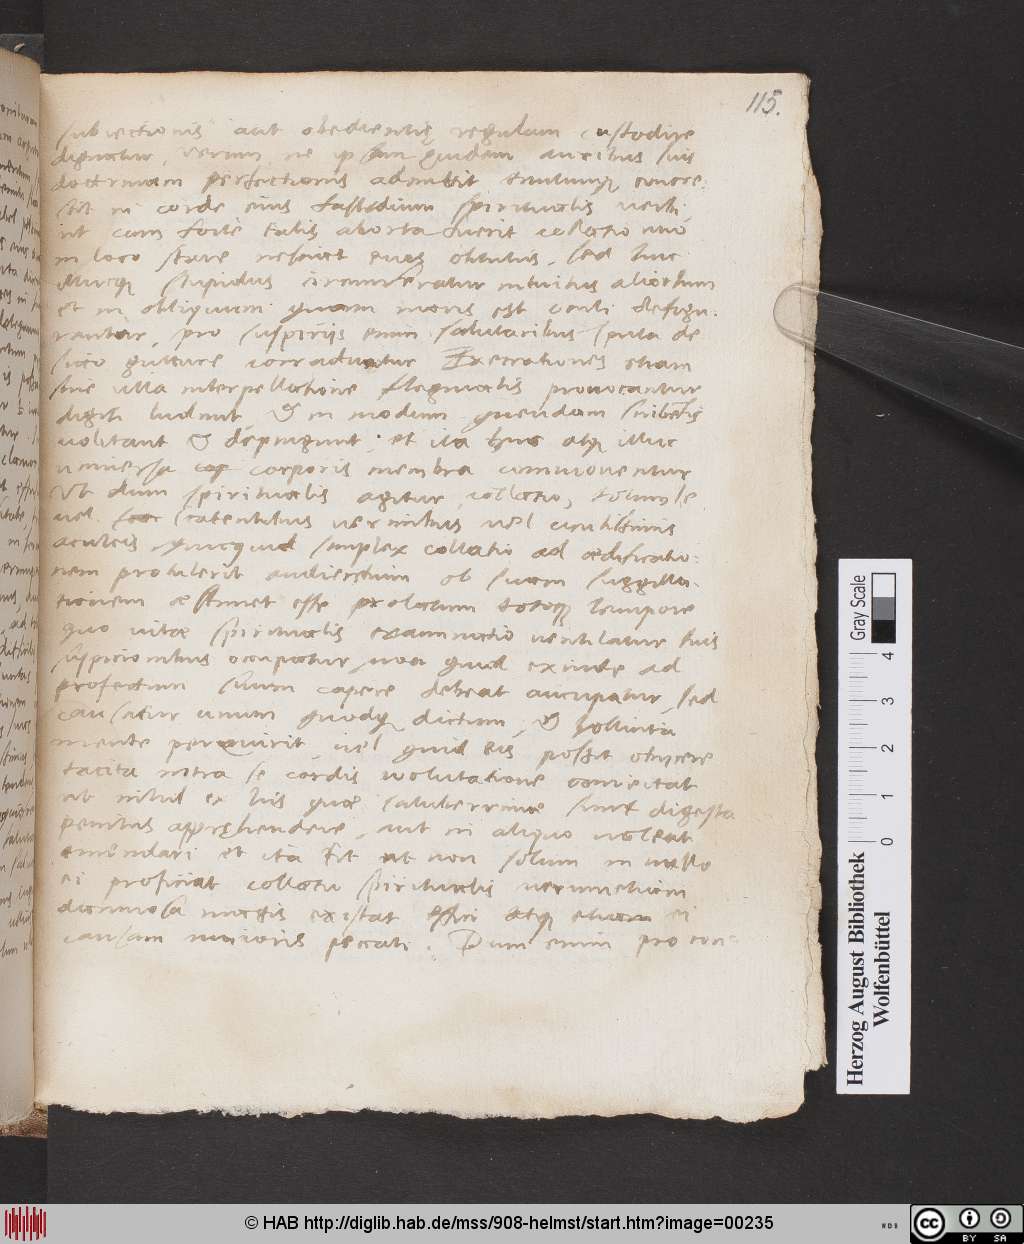 115.
subiectionis aut obedientię regulam custodire
dignatur, verum ne ipsam quidem auribus suis
doctrinam perfectionis admittit tantumq́ concre:
scit in corde eius fastidium spiritualis verbi,
ut cum forte talis aborta fuerit collatio uno
in loco stare nesciat eius obtutus, sed huc
illucq́ stupidus circumferatur intuitus aliorsum
et in obliquum quam moris est oculi defigu:
rantur, pro suspirijs enim salutaribus sputa de
sicco gutture corraduntur Excreationes etiam
sine ulla interpellatione flegmatis prouocantur
digiti ludunt & in modum quendam scribentis
uolitant & depingunt: et ita huc atq́ illuc
uniuersa corporis membra commouentur
Ut dum spiritualis agitur collatio, totum se
uel scatentibus vermibus uel acutissimis
aculeis quicquid simplex collatio ad ædificatio:
nem protulerit audientium ob suam suggilla:
tionem æstimet esse prolatum totoq́ tempore
quo uitæ spiritualis examinatio uentilatur suis
suspicionibus occupatur non quid exinde ad
profectum suum capere debeat aucupatur, sed
causatur unum quodq́ dictum, &
mente perquirit, uel quid eis possit obijcere
tacita intra se cordis uolutatione coniectat
ut nihil ex his quæ saluberrime sunt digesta
penitus apprehendere, aut in aliquo ualeat
emendari et ita fit ut non solum in nullo
ei proficiat collatio spiritualis uerumetiam
damnosa magis existat atq́ etiam ei
causam maioris peccati. Dum enim pro con:
Herzog August Bibliothek
Wolfenbüttel
0 1 2 3 4
Gray Scale
© HAB http://diglib.hab.de/mss/908-helmst/start.htm?image=00235
WDB
CC BY SA